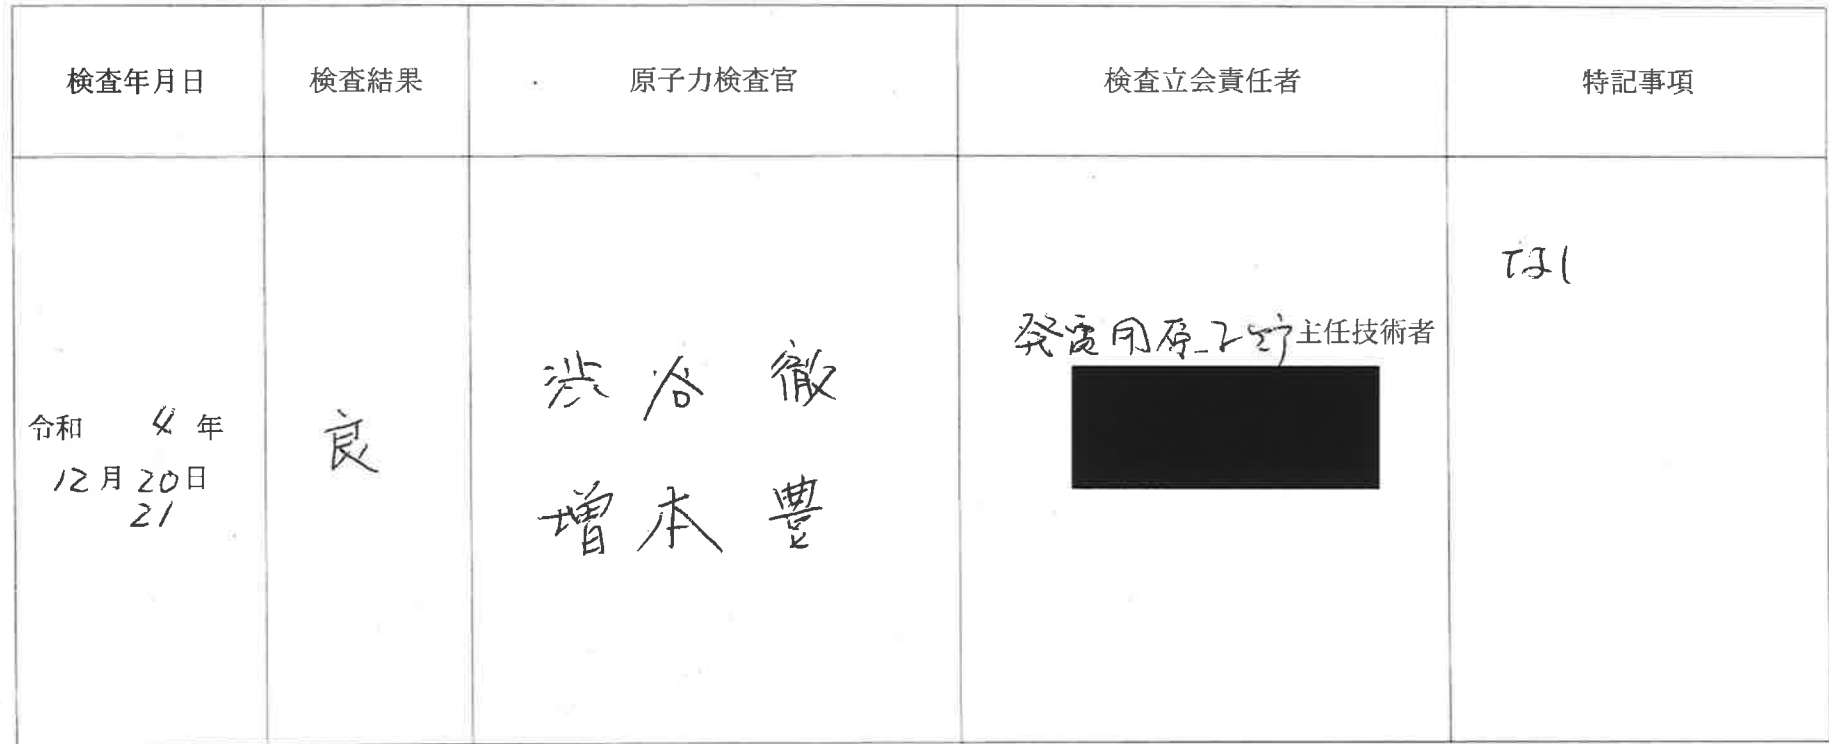 検査年月日 検査結果 原子力検査官 検査立会責任者 特記事項
令和 4 年
12月20日
21
良
渋谷 徹
増本 豊
発電用原子炉主任技術者
なし